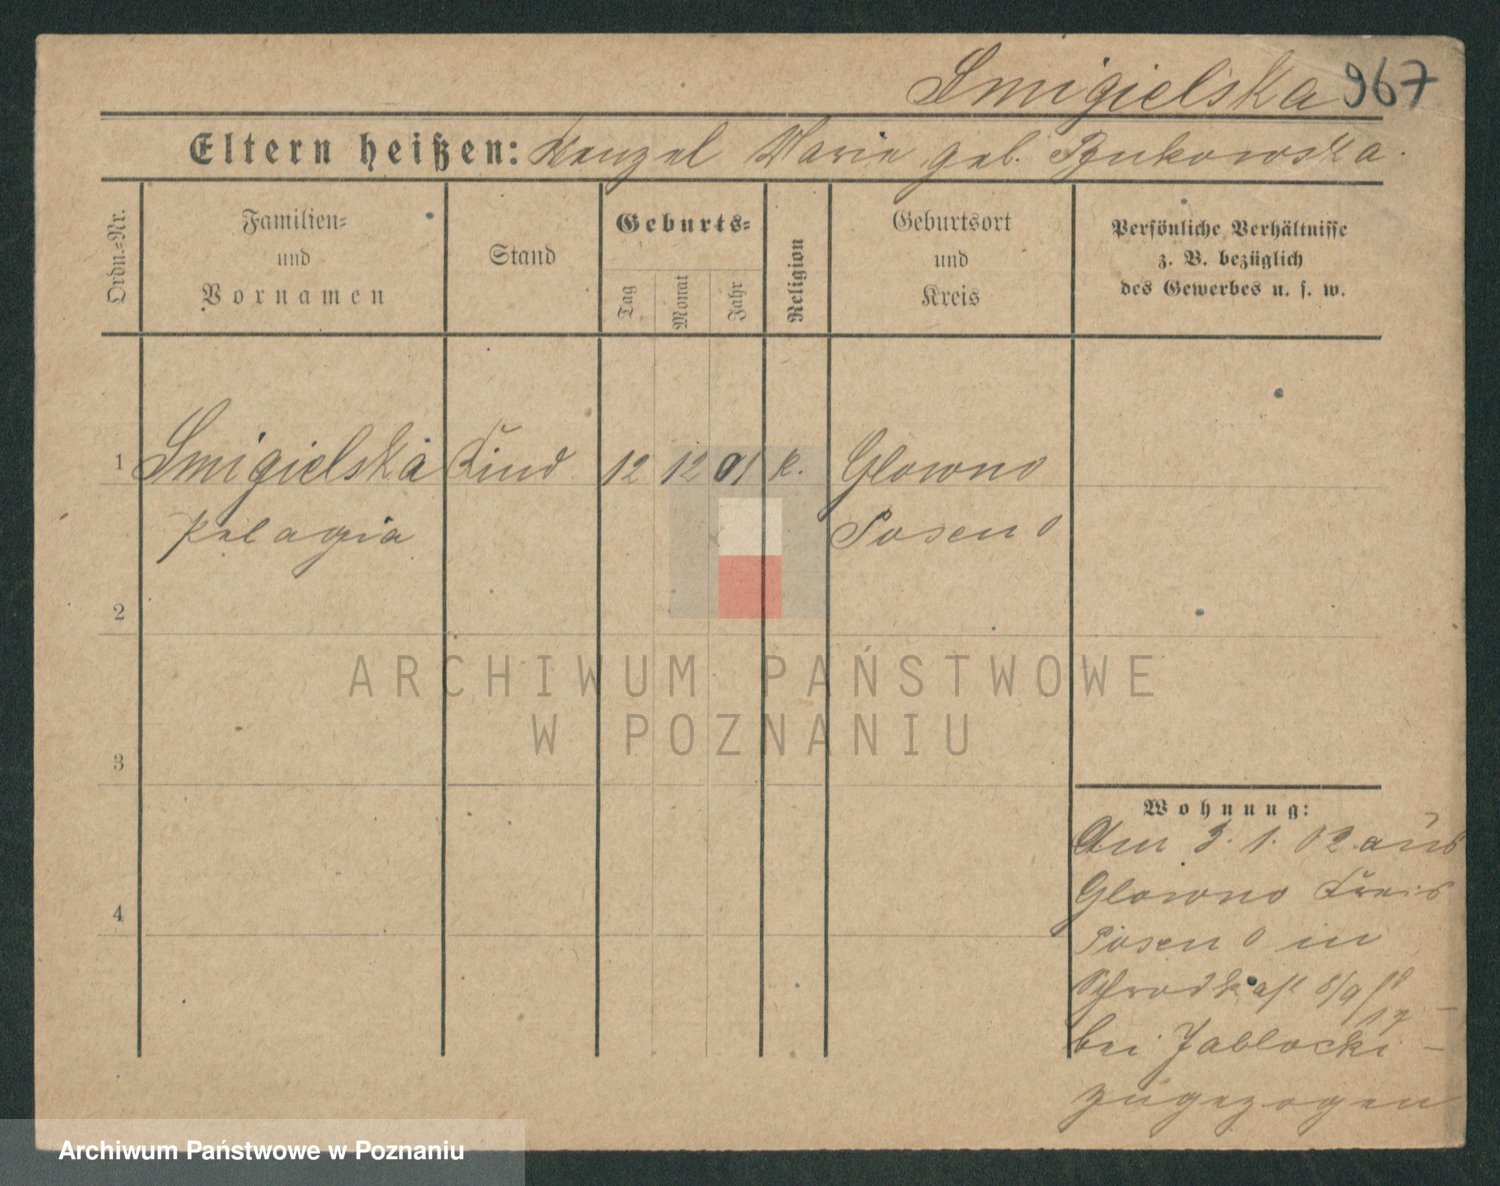 Smigielska 967
Eltern heißen: Wenzel Marie geb. Bukowska.
Ordn.=Nr.
Familien=
und
Vornamen
Stand
Geburts=
Tag
Monat
Jahr
Religion
Geburtsort
und
Kreis
Persönliche Verhältnisse
z. B. bezüglich
des Gewerbes u. s. w.
1 Smigielska Kind 12 12 01 k. Glowno
Pelagia Posen O
2
3
4
Wohnung:
Am 3. 1. 02 aus
Glowno Kreis
Posen O in
8/9
17
bei Jablocki
zugezogen
ARCHIWUM PAŃSTWOWE
W POZNANIU
Archiwum Państwowe w Poznaniu